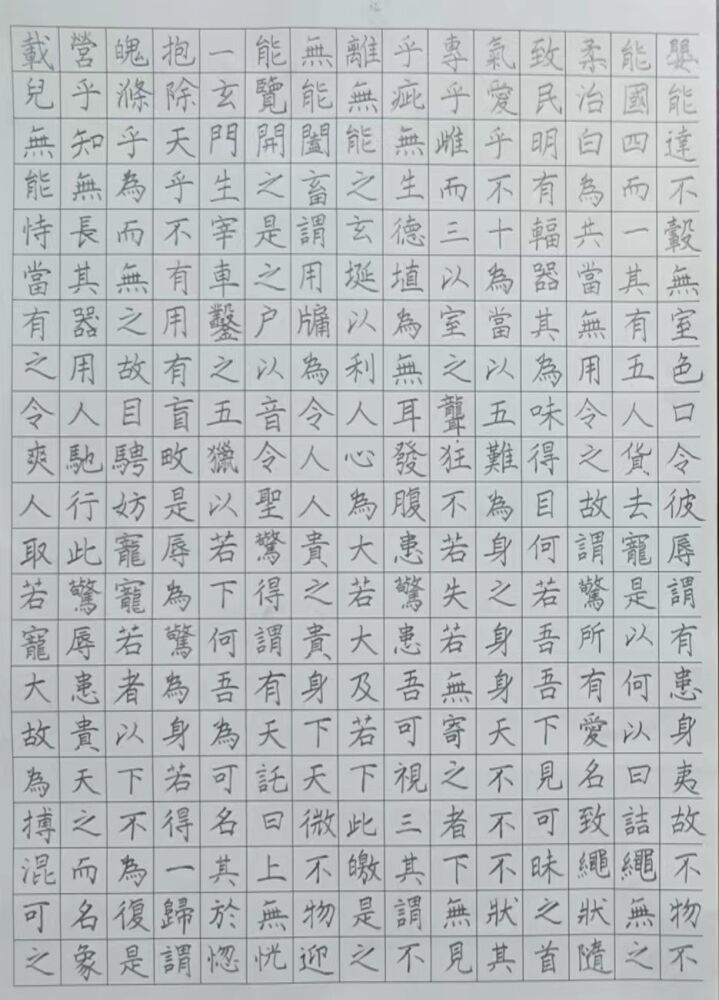 載營魄抱一能無離乎專氣致柔能嬰
兒乎滌除玄覽能無疵乎愛民治國能
無知乎天門開闔能無雌乎明白四達
能無為乎生之畜之生而不有為而不
恃長而不宰是謂玄德三十輻共一轂
當其無有車之用埏埴以為器當其無
有器之用鑿户牖以為室當其無有室
之用故有之以為利無之以為用五色
令人目盲五音令人耳聾五味令人口
爽馳騁畋獵令人心發狂難得之貨令
人行妨是以聖人為腹不為目故去彼
取此寵辱若驚貴大患若身何謂寵辱
若驚寵為下得之若驚失之若驚是謂
寵辱若驚何謂貴大患若身吾所以有
大患者為吾有身及吾無身吾有何患
故貴以身為天下若可寄天下愛以身
為天下若可託天下視之不見名曰夷
搏之不得名曰微此三者不可致詰故
混而為一其上不皦其下不昧繩繩不
可名復歸於無物是謂無狀之狀無物
之象是謂惚恍迎之不見其首隨之不